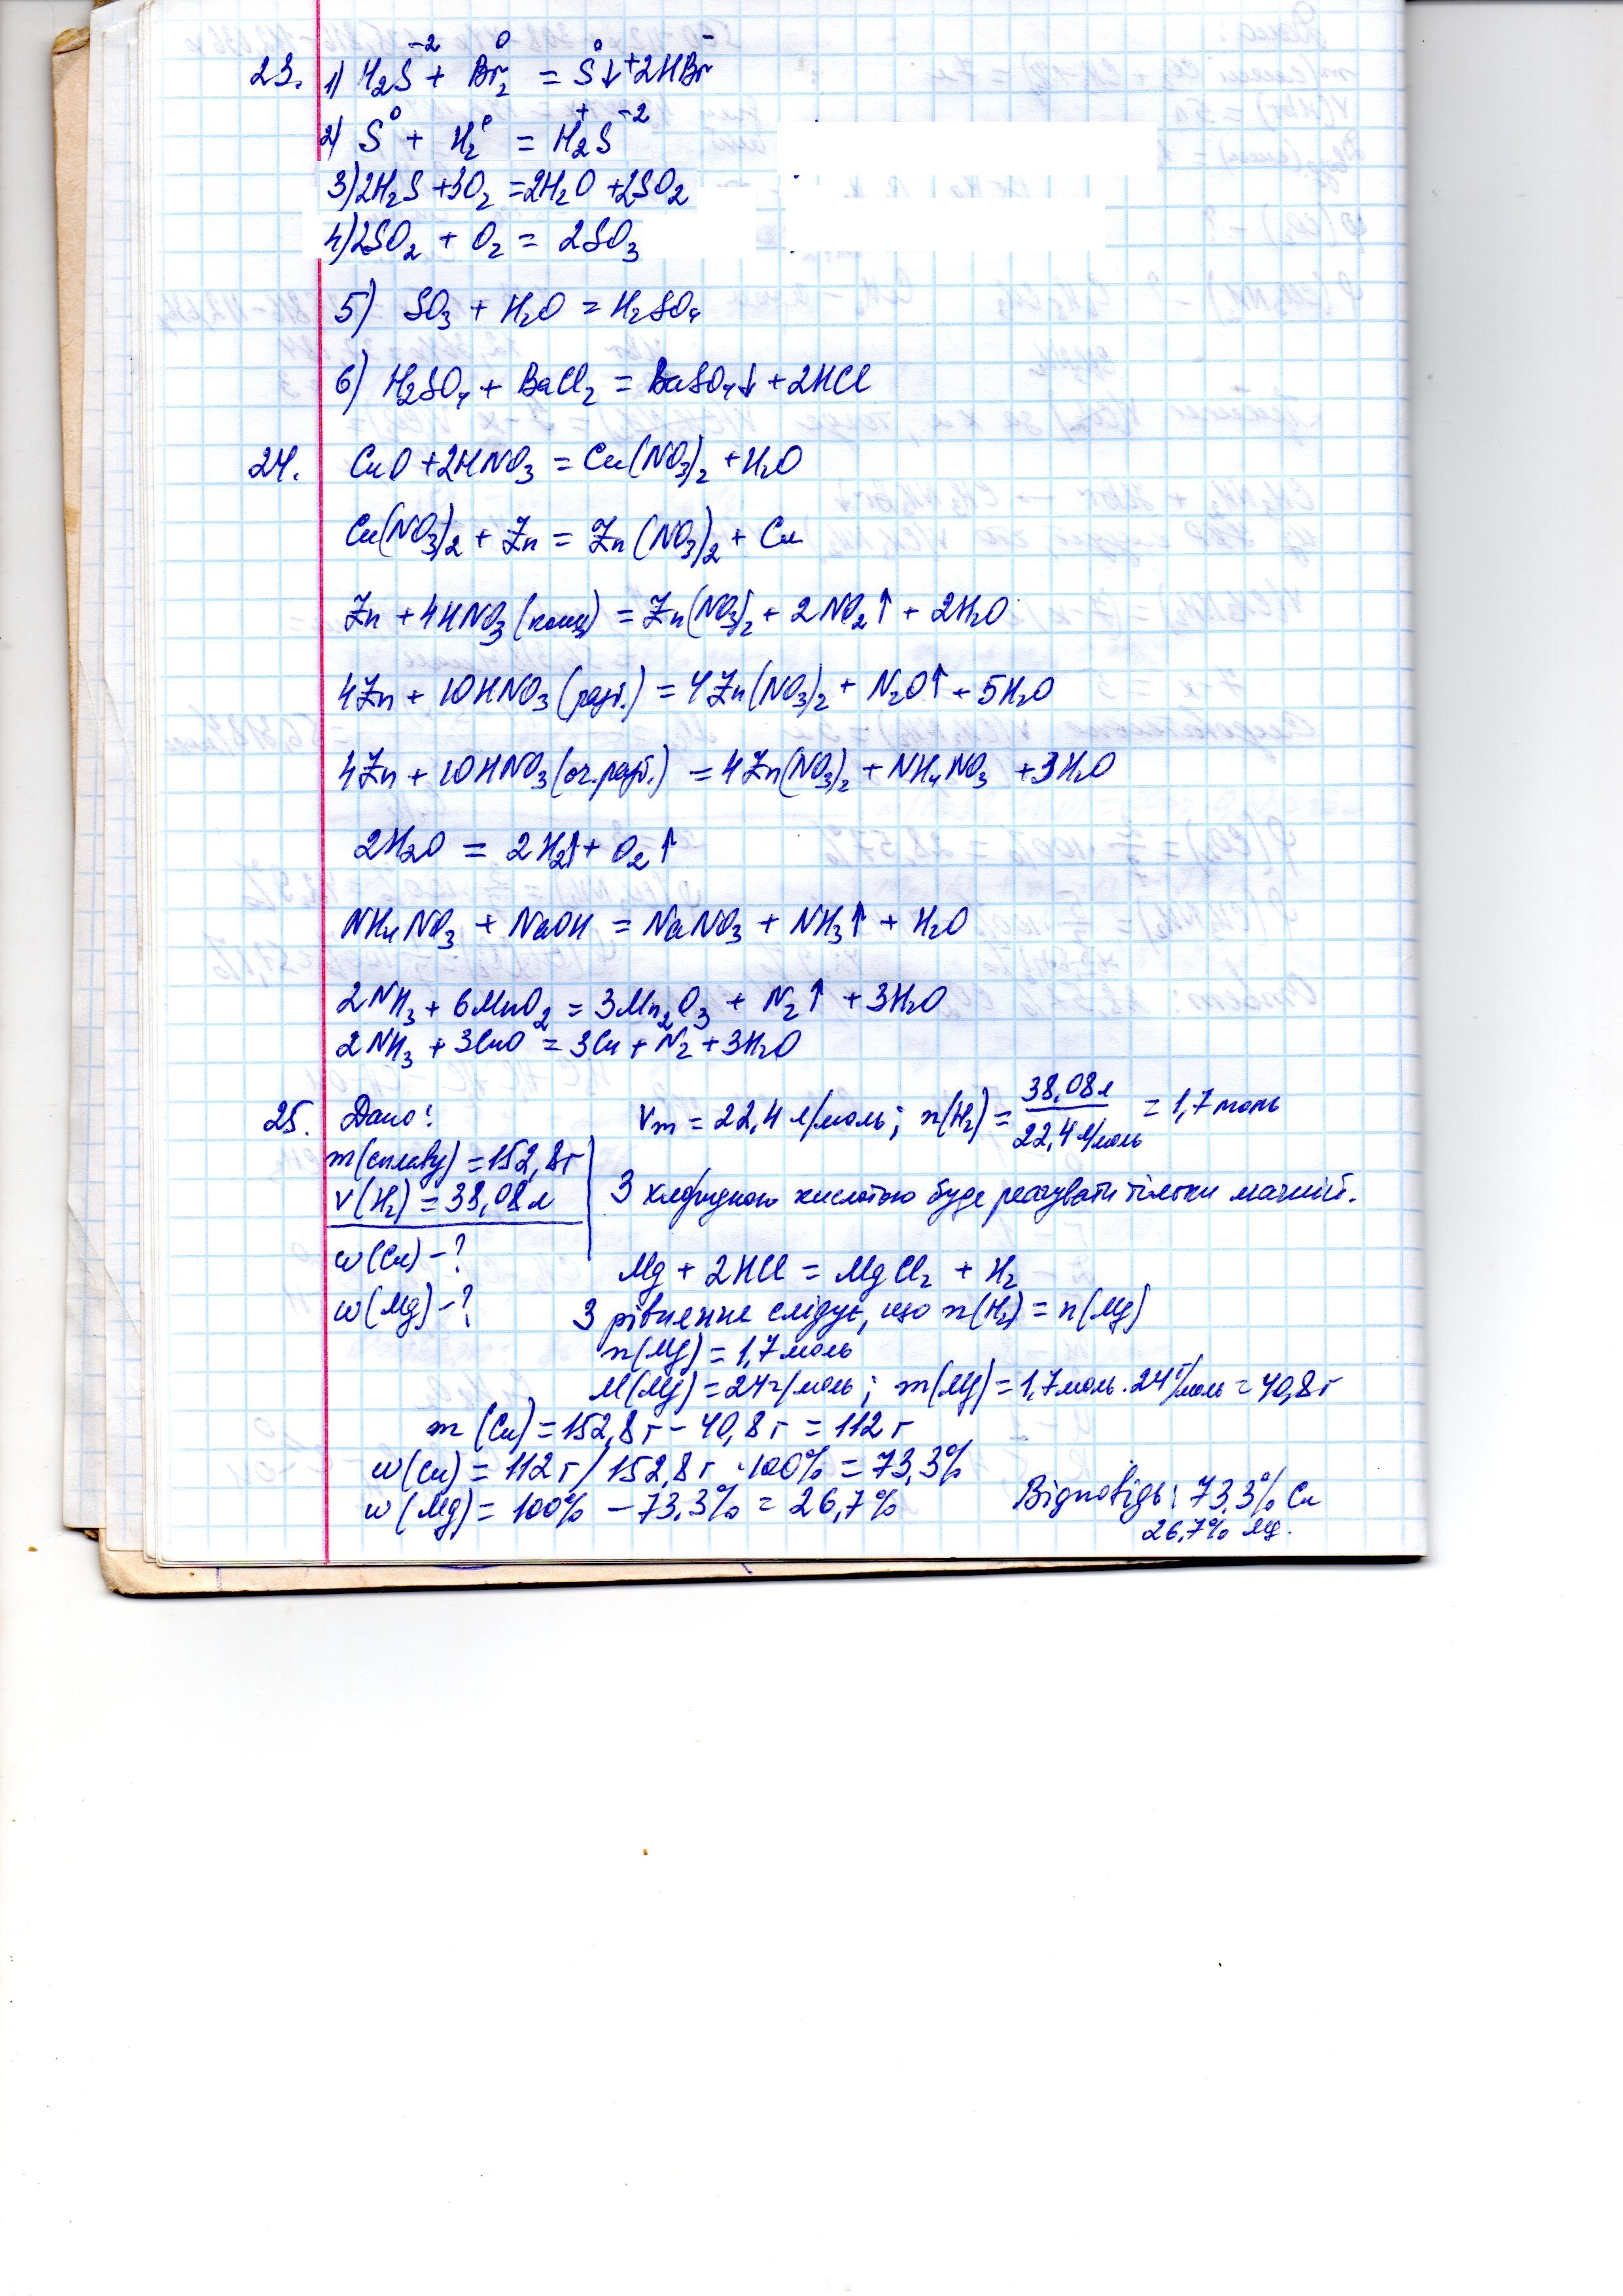 23. 1) H₂S⁻² + Br₂⁰ = S⁰↓ + 2HBr⁻
2) S⁰ + H₂⁰ = H₂⁺S⁻²
3) 2H₂S + 3O₂ = 2H₂O + 2SO₂
4) 2SO₂ + O₂ = 2SO₃
5) SO₃ + H₂O = H₂SO₄
6) H₂SO₄ + BaCl₂ = BaSO₄↓ + 2HCl
24. CuO + 2HNO₃ = Cu(NO₃)₂ + H₂O
Cu(NO₃)₂ + Zn = Zn(NO₃)₂ + Cu
Zn + 4HNO₃ (конц) = Zn(NO₃)₂ + 2NO₂↑ + 2H₂O
4Zn + 10HNO₃ (разб.) = 4Zn(NO₃)₂ + N₂O↑ + 5H₂O
4Zn + 10HNO₃ (оч. разб.) = 4Zn(NO₃)₂ + NH₄NO₃ + 3H₂O
2H₂O = 2H₂↑ + O₂↑
NH₄NO₃ + NaOH = NaNO₃ + NH₃↑ + H₂O
2NH₃ + 6MnO₂ = 3Mn₂O₃ + N₂↑ + 3H₂O
2NH₃ + 3CuO = 3Cu + N₂ + 3H₂O
25. Дано:
m(сплаву) = 152,8г
V(H₂) = 38,08л
w(Cu) - ?
w(Mg) - ?
Vm = 22,4 л/моль; n(H₂) = 38,08л / 22,4 л/моль = 1,7 моль
З хлоридною кислотою буде реагувати тільки магній.
Mg + 2HCl = MgCl₂ + H₂
З рівняння слідує, що n(H₂) = n(Mg)
n(Mg) = 1,7 моль
M(Mg) = 24г/моль; m(Mg) = 1,7моль · 24г/моль = 40,8г
m(Cu) = 152,8г - 40,8г = 112г
w(Cu) = 112г / 152,8г · 100% = 73,3%
w(Mg) = 100% - 73,3% = 26,7%
Відповідь: 73,3% Cu
26,7% Mg.